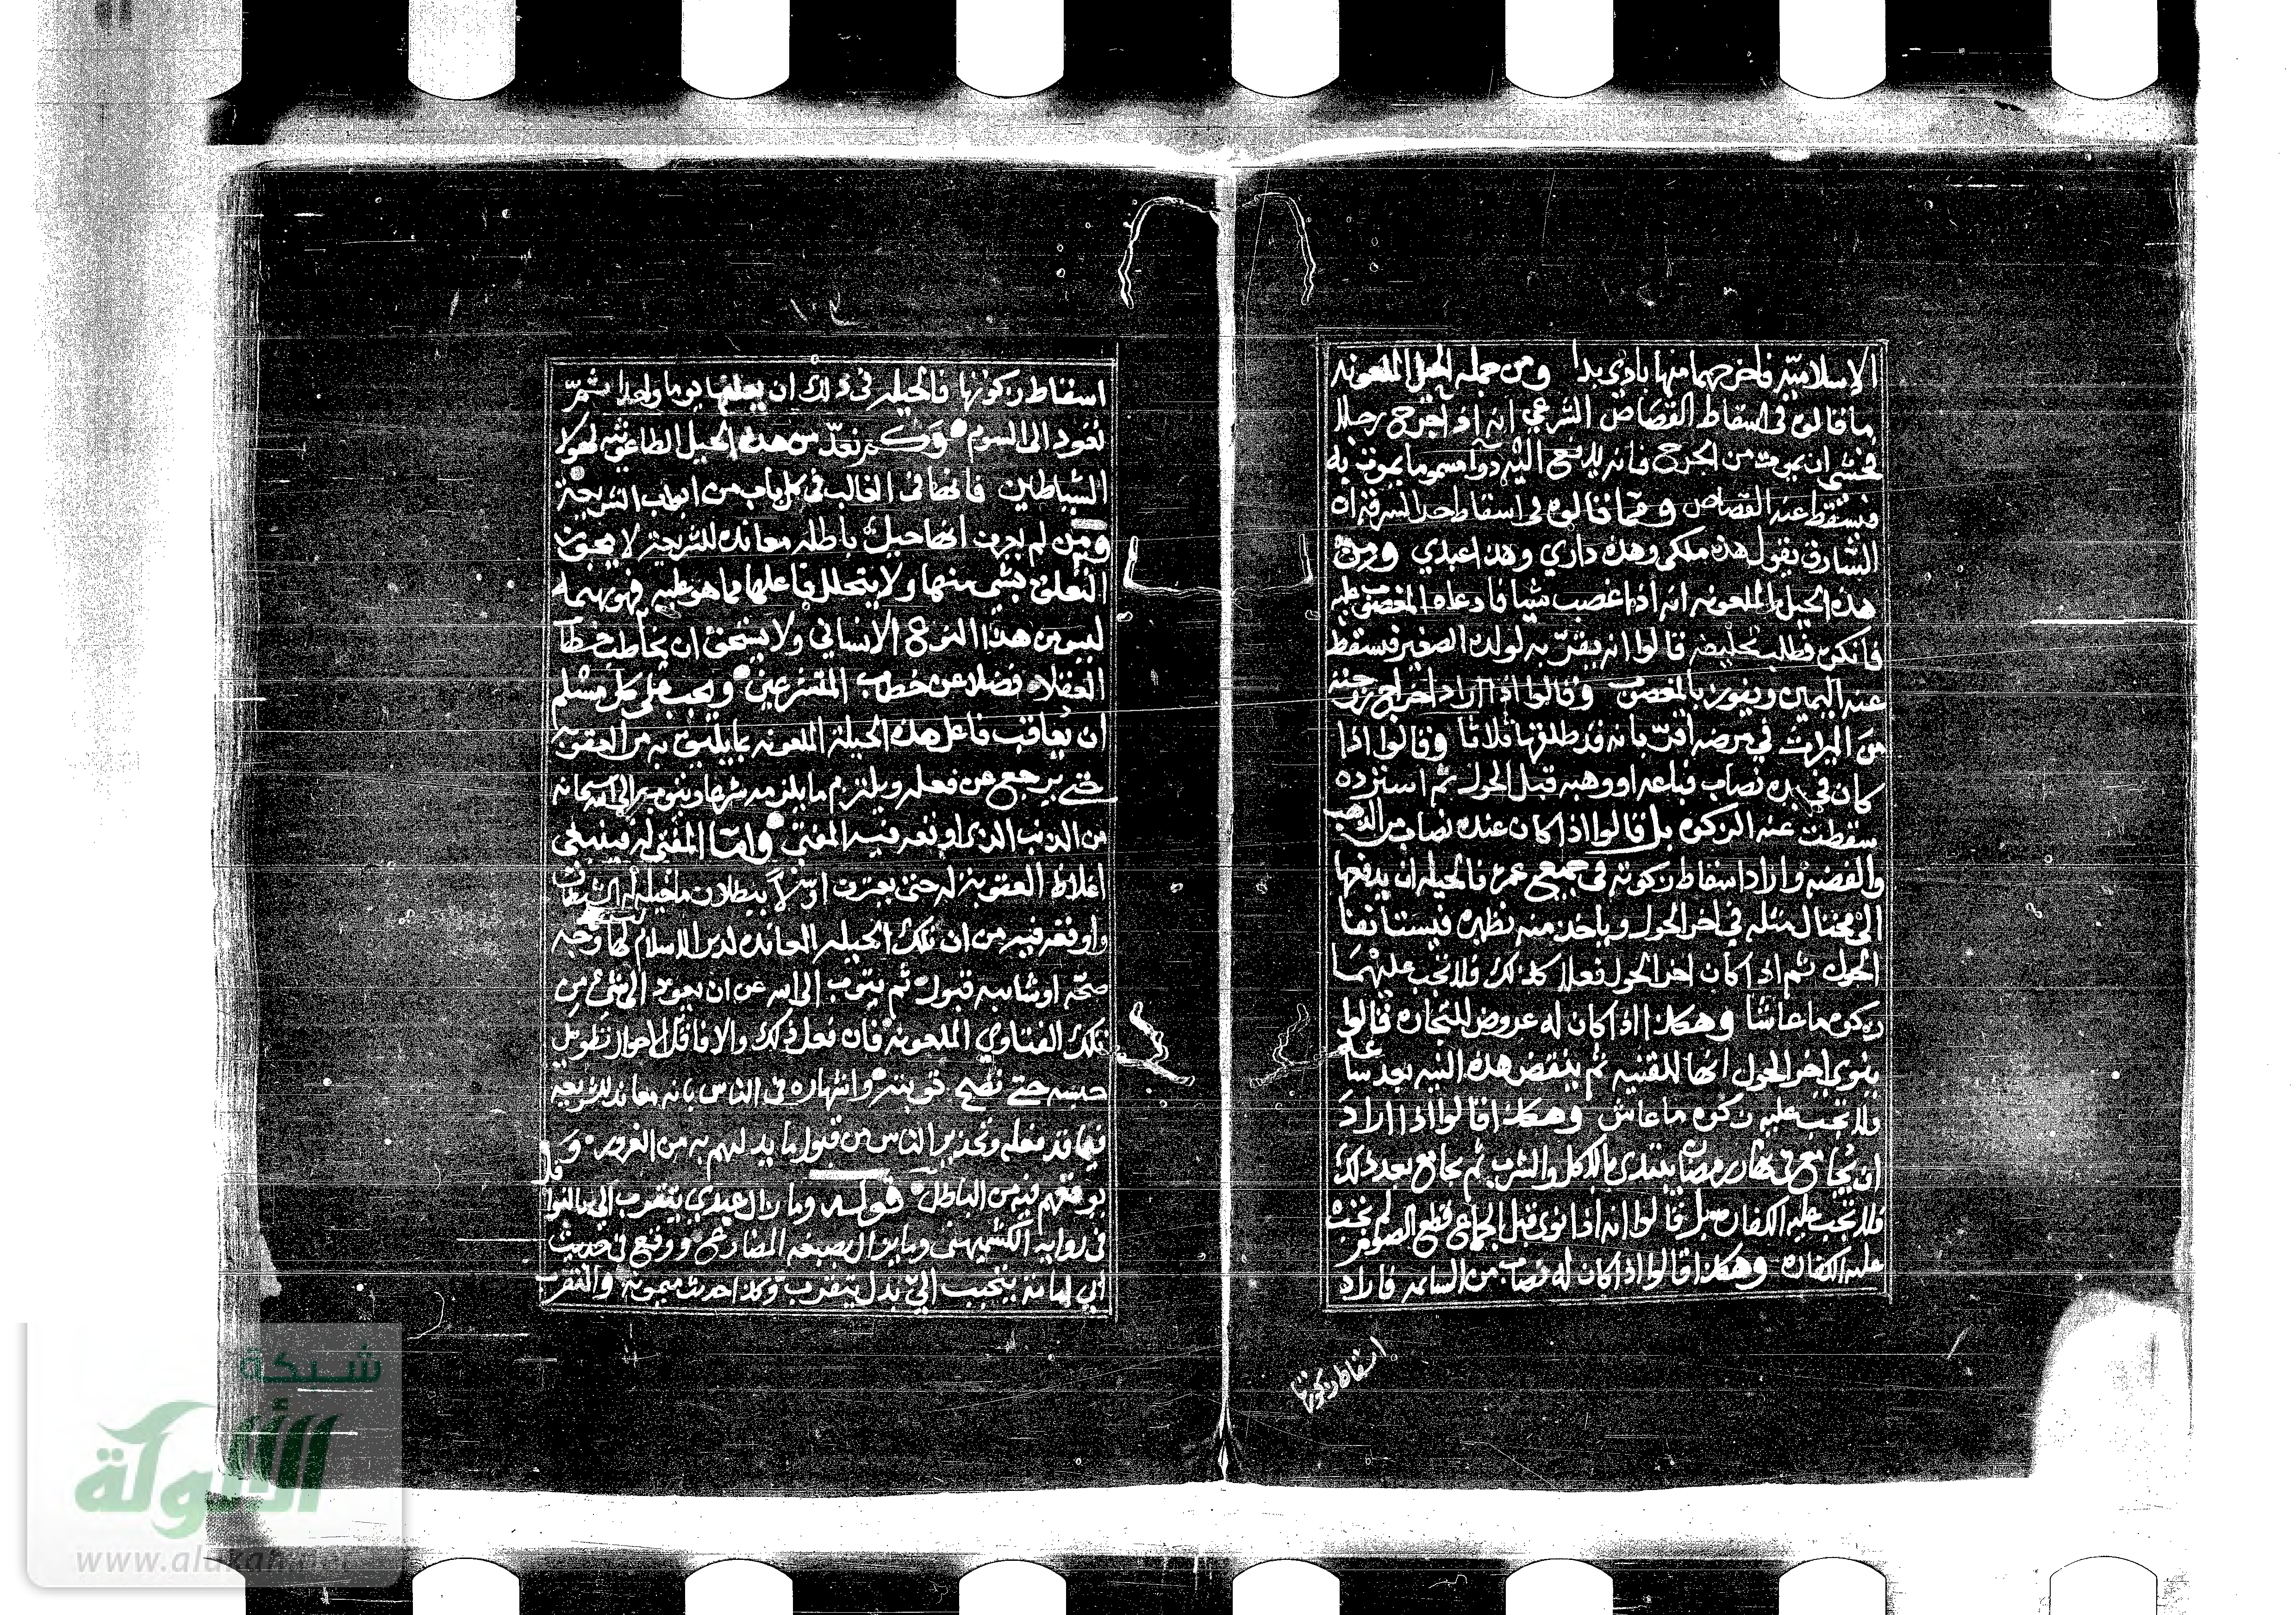 الاسلاميه فاخرجهما منها بادي بدا ومن جمله الحيل الملعونه
ما قالوه في اسقاط القصاص الشرعي انه اذا جرح رجلا
فخشي ان يموت من الجرح فانه يدفع اليه دوآ مسموما يموت به
فيسقط عنه القصاص ومما قالوه في اسقاط حد السرقه ان
السارق يقول هذه ملكي وهذه داري وهذا عبدي ومن
هذه الحيل الملعونه انه اذا غصب شيا فادعاه المغصوب عليه
فانكره فطلب تحليفه قالوا انه يقرّ به لولده الصغير فيسقط
عنه اليمين ويفوز بالمغصوب وقالوا اذا اراد اخراج زوجته
من الميراث في مرضه اقرّ بانه قد طلقها ثلاثا وقالوا اذا
كان في يده نصاب فباعه او وهبه قبل الحول ثم استرده
سقطت عنه الزكوه بل قالوا اذا كان عنده نصاب من الذهب
والفضه واراد اسقاط زكوته في جميع عمره فالحيله ان يدفعها
الى محتال مثله في اخر الحول وياخذ منه نظيره فيستانفا
الحول ثم اذا كان اخر الحول فعلا كذلك فلا تجب عليهما
زكوه ما عاشا وهكذا اذا كان له عروض للتجاره قالوا
ينوي اخر الحول انها للقنيه ثم ينقض هذه النيه بعد ساعه
فلا تجب عليه زكوه ما عاش وهكذا قالوا اذا اراد
ان يجامع في نهار رمضان يبتدي بالاكل والشرب ثم يجامع بعد ذلك
فلا تجب عليه الكفاره بل قالوا انه اذا نوى قبل الجماع قطع الصوم لم تجب
عليه الكفاره وهكذا قالوا اذا كان له نصاب من السايمه فاراد
اسقاط زكوتها
اسقاط زكوتها فالحيله في ذلك ان يعلفها يوما واحدا ثمّ
تعود الى السوم وكم نعدّ من هذه الحيل الطاغوتيه لهولا
الشياطين فانها في الغالب في كل باب من ابواب الشريعة
ومن لم يعرف انها حيل باطله معانده للشريعة لا يجوز
التعلق بشي منها ولا يتحلل فاعلها مما هو عليه فهو بهيمه
ليس من هذا النوع الانساني ولا يستحق ان يخاطب خطاب
العقلاء فضلا عن خطاب المتشرعين ويجب على كل مسلم
ان يعاقب فاعل هذه الحيلة الملعونه بما يليق به من العقوبه
حتى يرجع عن فعله ويلتزم ما يلزمه شرعا ويتوب الى الله سبحانه
من الذنب الذي اوقعه فيه المفتي وامّا المفتي له فينبغي
اغلاظ العقوبة له حتى يعترف اولاً ببطلان ما خيله له الشيطان
واوقعه فيه من ان تلك الحيله المعانده لدين الاسلام لها وجه
صحّه او شايبه قبول ثم يتوب الى الله عن ان يعود الى شيء من
تلك الفتاوي الملعونة فان فعل ذلك والا فاقل الاحوال تطويل
حبسه حتى تصح توبته واشهاره في الناس بانه معاند للشريعه
فيما قد فعله وتحذير الناس من قبول ما يدليهم به من الغرور و
يوقعهم فيه من الباطل قوله وما زال عبدي يتقرب الي بالنوافل
في روايه الكشميهني وما يزال بصيغه المضارع ووقع في حديث
ابي امامة يتحبب اليّ بدل يتقرب وكذا حديث ميمونة والتقرب
شبكة
الألوكة
www.alukah.net